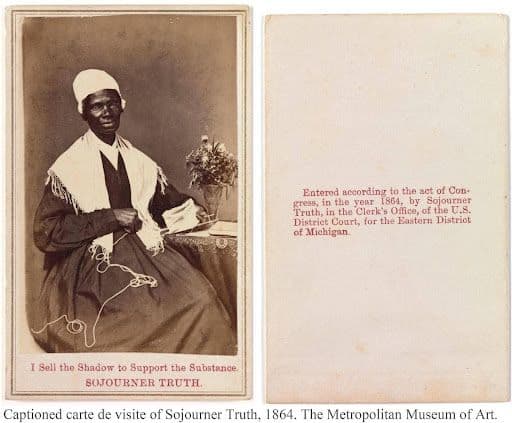 I Sell the Shadow to Support the Substance.
SOJOURNER TRUTH.
Entered according to the act of Con-
gress, in the year 1864, by Sojourner
Truth, in the Clerk's Office, of the U.S.
District Court, for the Eastern District
of Michigan.
Captioned carte de visite of Sojourner Truth, 1864. The Metropolitan Museum of Art.